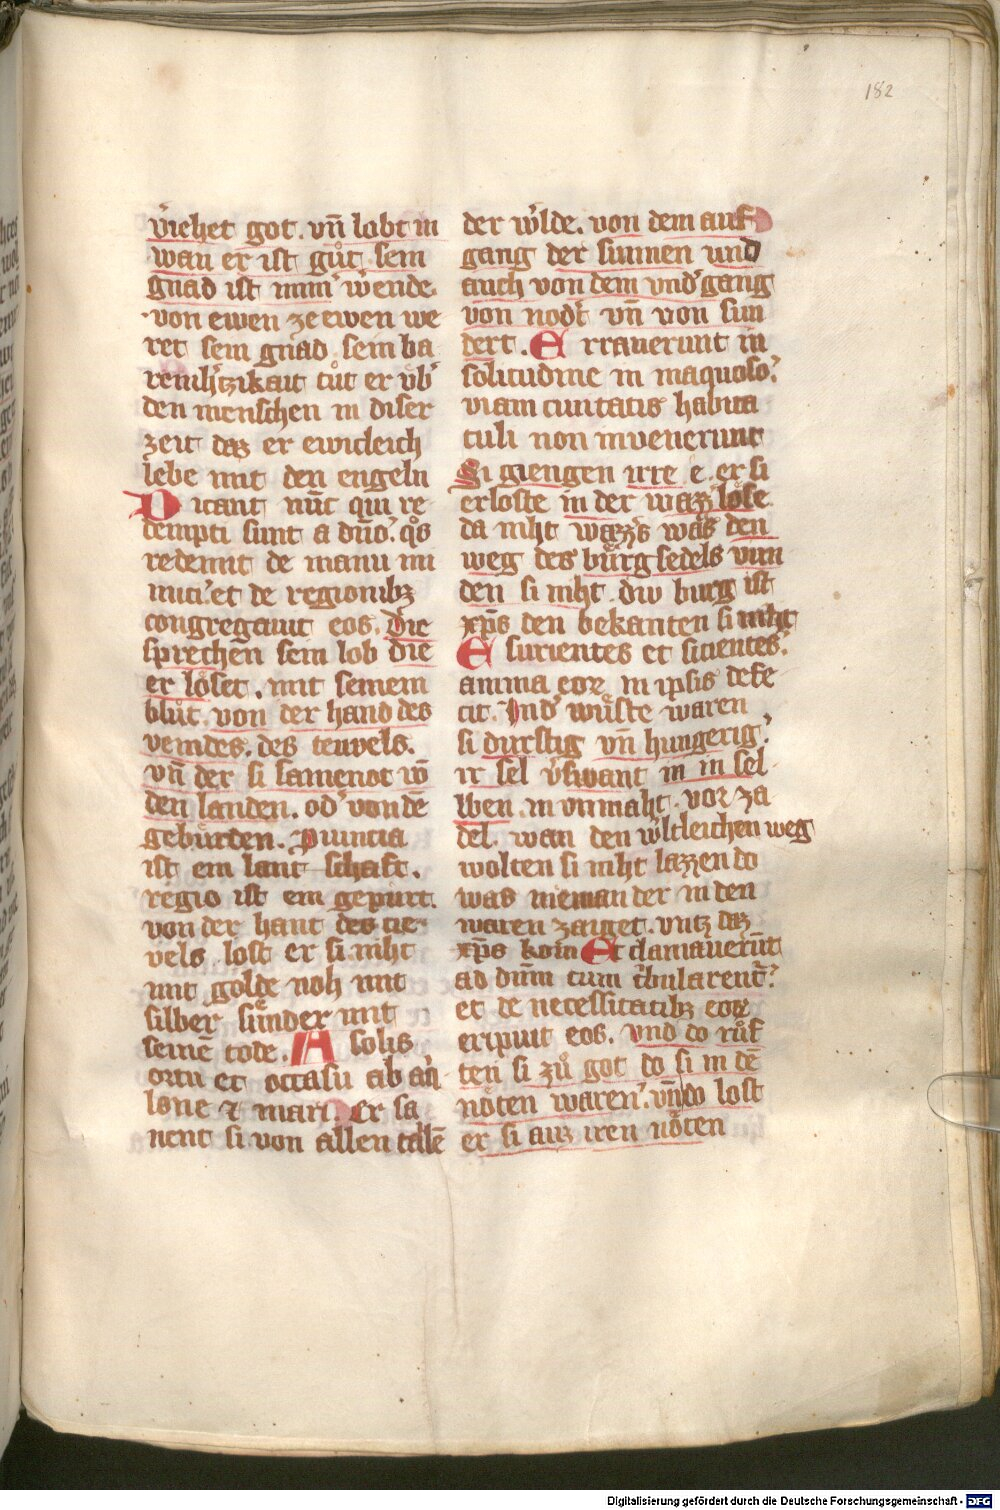 182
v̾iehet got. vn̄ lobt in
wan er ist gůt. sein
gnad ist nim̄ wende.
von ewen ze ewen we
ret sein gnad. sein ba
remh̾tzikait tůt er vb̾
den menschen in diser
zeit daz er ewicleich
lebe mit den engeln
Dicant nūc qui re
dempti sunt a dn̄o. qͦs
redemit de manu ini
mici. et de regionibꝫ
congregauit eos. Die
sprechen sein lob die
er lǒset. mit seinem
blůt. von der hand des
veindes. des teuvels.
vn̄ der si samenot vō
den landen. od̾ von dē
gebůrden. Puincia
ist ein lant schaft.
regio ist ein gepůrt.
von der hant des tie
vels. lost er si niht
mit golde noh mit
silber sunder mit
seinē tode. A solis
ortu et occasu ab aq̾
lone ⁊ mari. Er sa
nent si von allen tailē
der w̾lde. von dem auf
gang der sunnen und
auch von dem vnd̾gang
von nord̾t vn̄ von sun
dert. Errauerunt in
solitudine in inaquoso.
viam ciuitatis habita
culi non inuenerunt
Si giengen irre e. er si
erloste in der wazz̾lǒse
da niht wazz̾s was den
weg des burgsedels vun
den si niht. diw burg ist
xp̄s den bekanten si niht
Esurientes et sicientes.
anima eoꝝ in ipsis defe
cit. In d̾ wůste waren
si durstig vn̄ hungerig.
ir sel v̾swant in in sel
lben. in vnmaht. vor za
del. wan den w̾ltleichen weg
wolten si niht lazzen do
was nieman der in den
waren zaiget. vntz daz
xp̄s kom Et clamauerūt
ad dn̄m cum t̾bularent̾.
et de necessitatibꝫ eoꝝ
eripuit eos. vnd do růf
ten si zů got do si in dē
nǒten waren. vn̄ do lost
er si auz iren nǒten
Digitalisierung gefördert durch die Deutsche Forschungsgemeinschaft - DFG